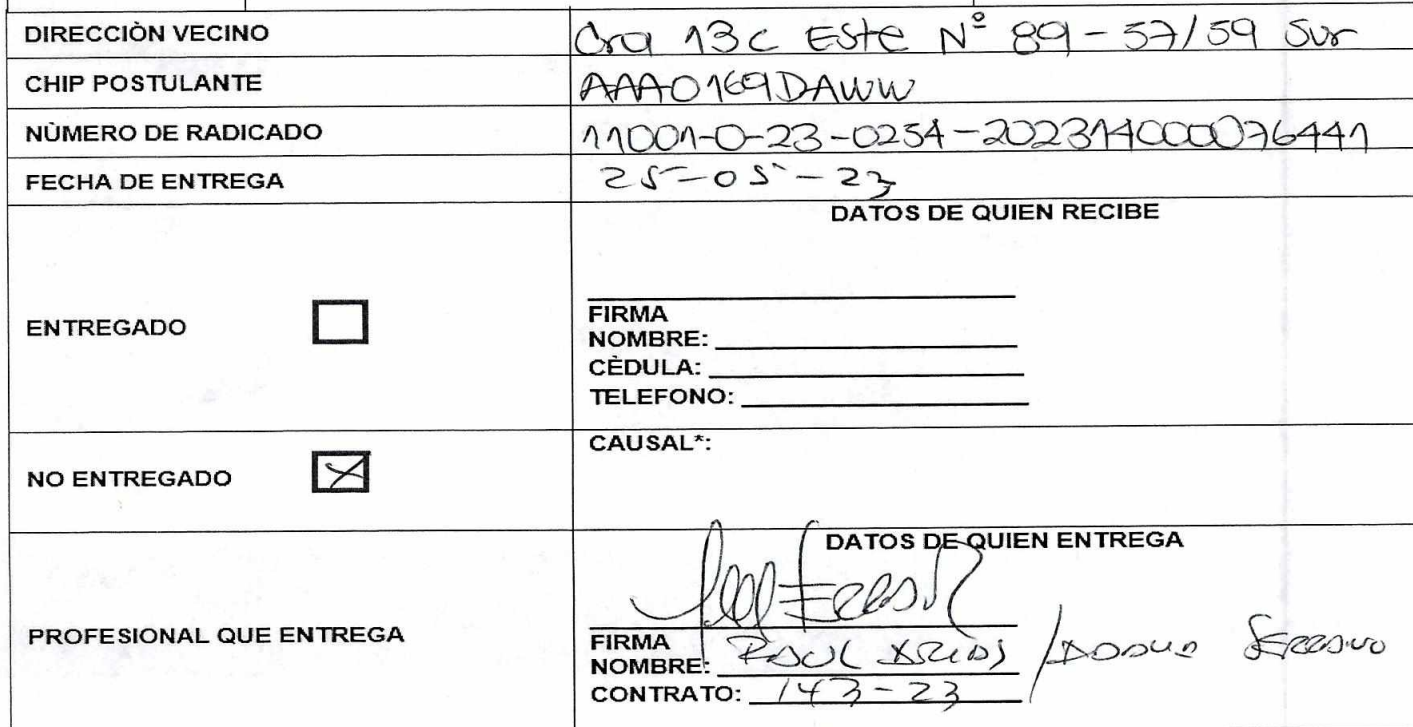 DIRECCIÒN VECINO Cra 13c Este Nº 89-57/59 Sur
CHIP POSTULANTE AAA0169DAWW
NÙMERO DE RADICADO 11001-0-23-0254-2023140000076441
FECHA DE ENTREGA 25-05-23
DATOS DE QUIEN RECIBE
ENTREGADO
FIRMA
NOMBRE:
CÈDULA:
TELEFONO:
NO ENTREGADO X
CAUSAL*:
DATOS DE QUIEN ENTREGA
PROFESIONAL QUE ENTREGA
FIRMA
NOMBRE: Raul Arias /
CONTRATO: 143-23